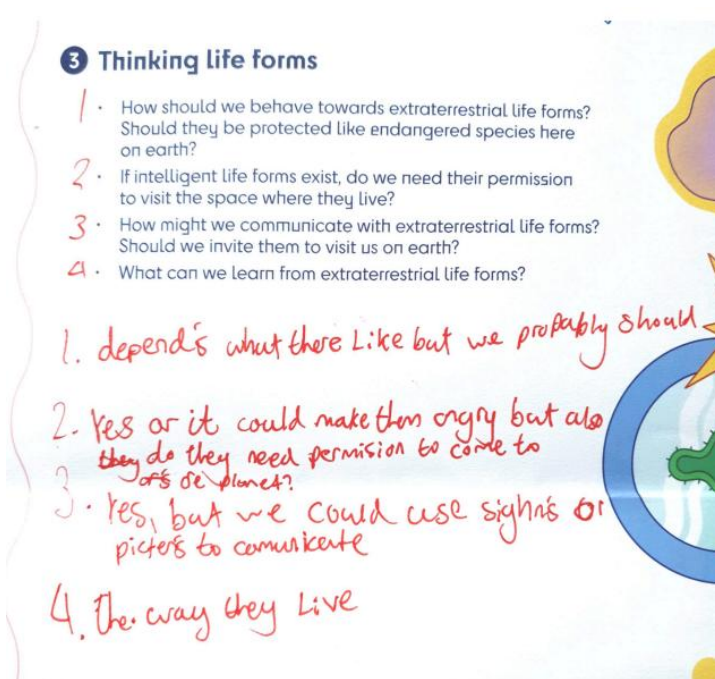 3 Thinking life forms
1 · How should we behave towards extraterrestrial life forms?
Should they be protected like endangered species here
on earth?
2 · If intelligent life forms exist, do we need their permission
to visit the space where they live?
3 · How might we communicate with extraterrestrial life forms?
Should we invite them to visit us on earth?
4 · What can we learn from extraterrestrial life forms?
1. depends what there Like but we propably should
2. Yes or it could make them angry but also
they do they need permision to come to
planet?
3. Yes, but we could use sighns or
picters to comunicate
4. The way they Live